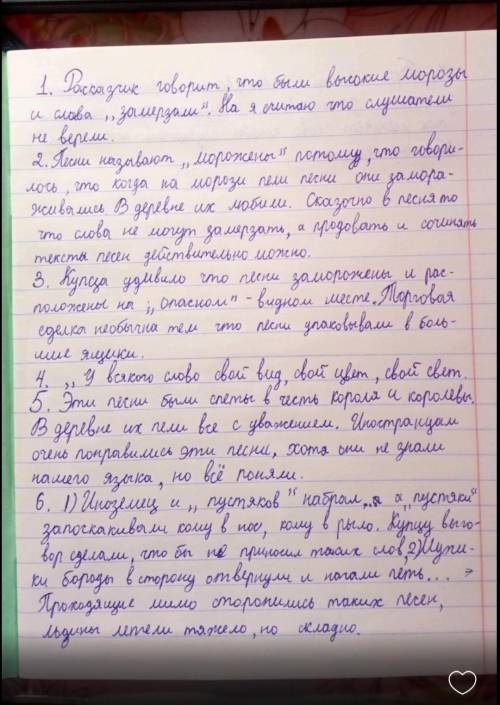 1. Расказчик говорит, что были высокие морозы
и слова ,,замерзали". На я считаю что слушатели
не верели.
2. Песни называют ,,морожены" потому, что говори-
лось, что когда на морози пели песни они замора-
живались. В деревне их любили. Сказочно в песня то
что слова не могут замерзать, а продовать и сочинять
тексты песен действительно можно.
3. Купца удивило что песни заморожены и рас-
положены на ,,опасном" - видном месте. Торговая
сделка необычна тем что песни упаковывали в боль-
шие ящики.
4. ,,У всякого слово свой вид, свой цвет, свой свет.
5. Эти песни были спеты в честь короля и королевы.
В деревне их пели все с уважением. Иностранцам
очень понравились эти песни, хотя они не знали
нашего языка, но всё поняли.
6. 1) Иноземец и ,,пустяков" набрал, а ,,пустяки"
запоскакивали кому в нос, кому в рыло. Купцу выго-
вор сделали, что бы не приносил таких слов, 2) Щупи-
ки бороды в сторону отвернули и начали петь...
Проходящие мимо сторопились таких песен,
льдины летели тяжело, но складно.